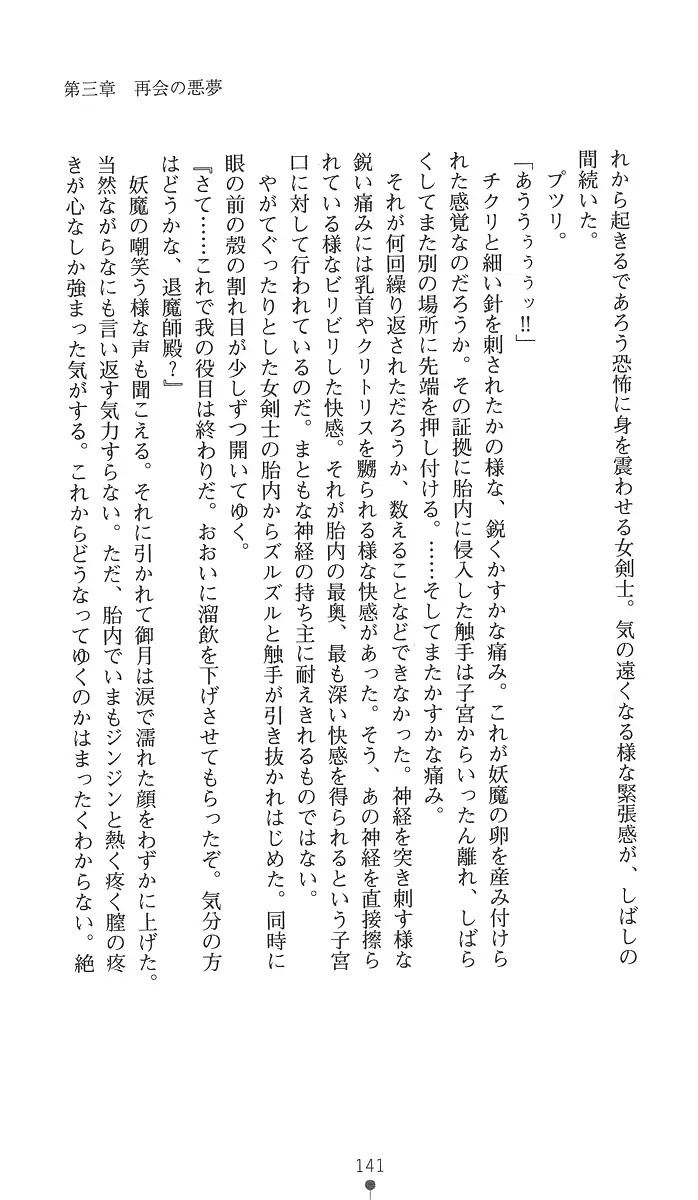 第三章　再会の悪夢
れから起きるであろう恐怖に身を震わせる女剣士。気の遠くなる様な緊張感が、しばしの
間続いた。
　プツリ。
「あううぅぅぅッ!!」
　チクリと細い針を刺されたかの様な、鋭くかすかな痛み。これが妖魔の卵を産み付けら
れた感覚なのだろうか。その証拠に胎内に侵入した触手は子宮からいったん離れ、しばら
くしてまた別の場所に先端を押し付ける。……そしてまたかすかな痛み。
　それが何回繰り返されただろうか、数えることなどできなかった。神経を突き刺す様な
鋭い痛みには乳首やクリトリスを嬲られる様な快感があった。そう、あの神経を直接擦ら
れている様なビリビリした快感。それが胎内の最奥、最も深い快感を得られるという子宮
口に対して行われているのだ。まともな神経の持ち主に耐えきれるものではない。
　やがてぐったりとした女剣士の胎内からズルズルと触手が引き抜かれはじめた。同時に
眼の前の殻の割れ目が少しずつ開いてゆく。
『さて……これで我の役目は終わりだ。おおいに溜飲を下げさせてもらったぞ。気分の方
はどうかな、退魔師殿？』
　妖魔の嘲笑う様な声も聞こえる。それに引かれて御月は涙で濡れた顔をわずかに上げた。
当然ながらなにも言い返す気力すらない。ただ、胎内でいまもジンジンと熱く疼く膣の疼
きが心なしか強まった気がする。これからどうなってゆくのかはまったくわからない。絶
141